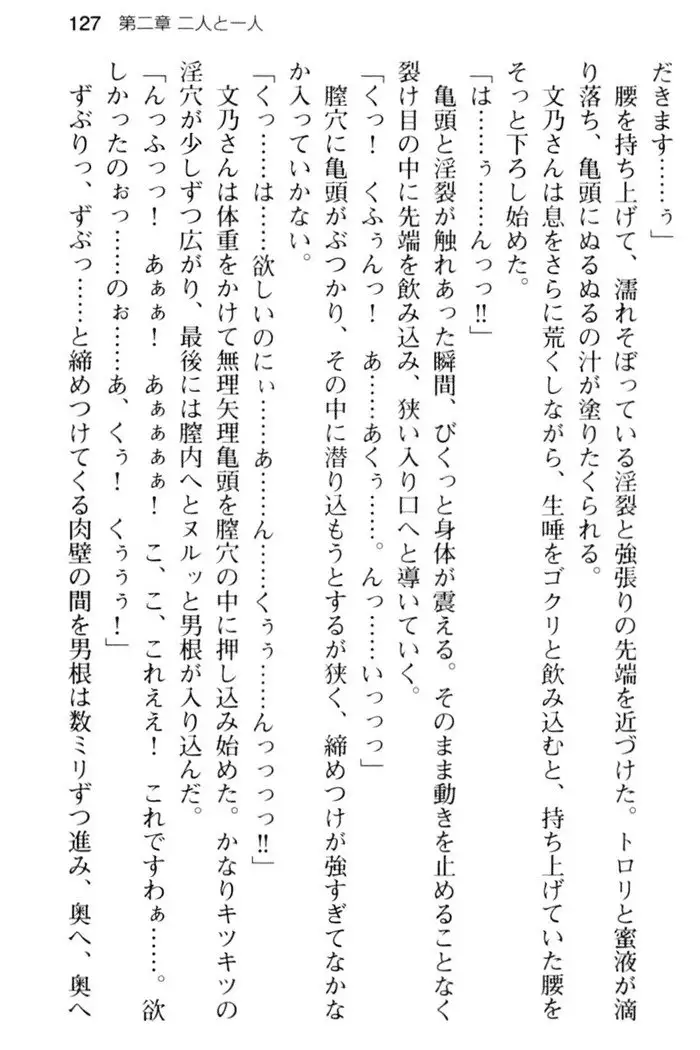 127 第二章 二人と一人
だきます……ぅ」
腰を持ち上げて、濡れそぼっている淫裂と強張りの先端を近づけた。トロリと蜜液が滴
り落ち、亀頭にぬるぬるの汁が塗りたくられる。
文乃さんは息をさらに荒くしながら、生唾をゴクリと飲み込むと、持ち上げていた腰を
そっと下ろし始めた。
「は……ぅ……んっっ!!」
亀頭と淫裂が触れあった瞬間、びくっと身体が震える。そのまま動きを止めることなく
裂け目の中に先端を飲み込み、狭い入り口へと導いていく。
「くっ！　くふぅんっ！　あ……あくぅ……。んっ……いっっっ」
膣穴に亀頭がぶつかり、その中に潜り込もうとするが狭く、締めつけが強すぎてなかな
か入っていかない。
「くっ……は……欲しいのにぃ……あ……ん……くぅぅ……んっっっっ!!」
文乃さんは体重をかけて無理矢理亀頭を膣穴の中に押し込み始めた。かなりキツキツの
淫穴が少しずつ広がり、最後には膣内へとヌルッと男根が入り込んだ。
「んっふっっ！　あぁぁ！　あぁぁぁぁ！　こ、こ、これええ！　これですわぁ……。欲
しかったのぉっ……のぉ……あ、くぅ！　くぅぅぅ！」
ずぶりっ、ずぶっ……と締めつけてくる肉壁の間を男根は数ミリずつ進み、奥へ、奥へ